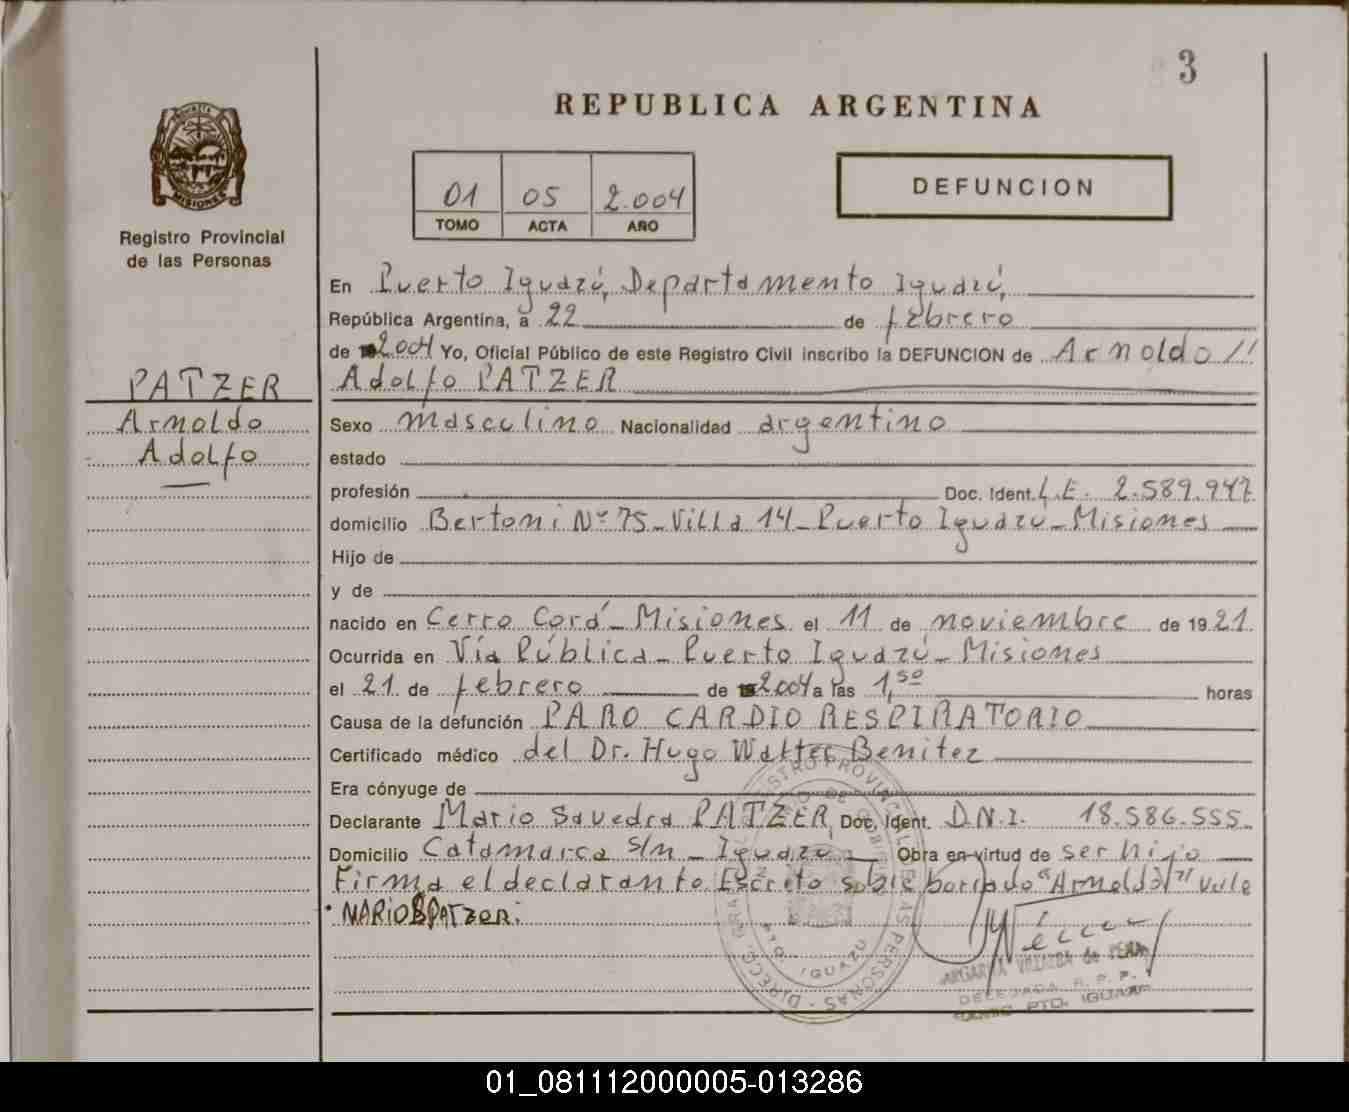 3
REPUBLICA ARGENTINA
MISIONES
Registro Provincial
de las Personas
01 05 2.004
TOMO ACTA AÑO
DEFUNCION
En Puerto Iguazú, Departamento Iguazú,
República Argentina, a 22 de febrero
de 2004 Yo, Oficial Público de este Registro Civil inscribo la DEFUNCION de Arnoldo //
Adolfo PATZER
PATZER
Arnoldo
Adolfo
Sexo masculino Nacionalidad argentino
estado
profesión Doc. Ident. L.E. 2.589.947
domicilio Bertoni Nº 75 - Villa 14 - Puerto Iguazú - Misiones
Hijo de
y de
nacido en Cerro Corá - Misiones el 11 de noviembre de 1921
Ocurrida en Vía Pública - Puerto Iguazú - Misiones
el 21 de febrero de 2004 a las 1,50 horas
Causa de la defunción PARO CARDIO RESPIRATORIO
Certificado médico del Dr. Hugo Walter Benitez
Era cónyuge de
Declarante Mario Savedra PATZER, Doc. Ident. D.N.I. 18.586.555
Domicilio Catamarca s/n - Iguazú - Obra en virtud de ser hijo
Firma el declarante Escrito sobre borrado "Arnoldo" Vale
MARIO S PATZER.
DELEGADA R. P. P.
PTO. IGUAZU
01_081112000005-013286